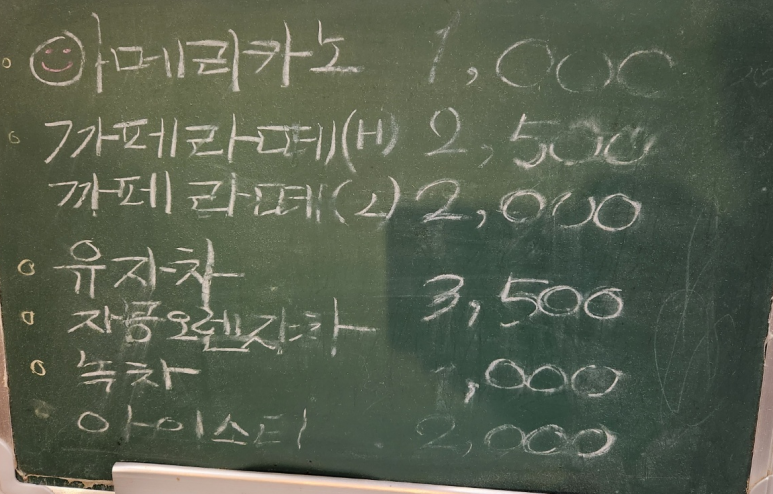 아메리카노 1,000
까페라떼(H) 2,500
까페라떼 2,000
유자차 3,500
자몽오렌지차
녹차 1,000
아이스티 2,000